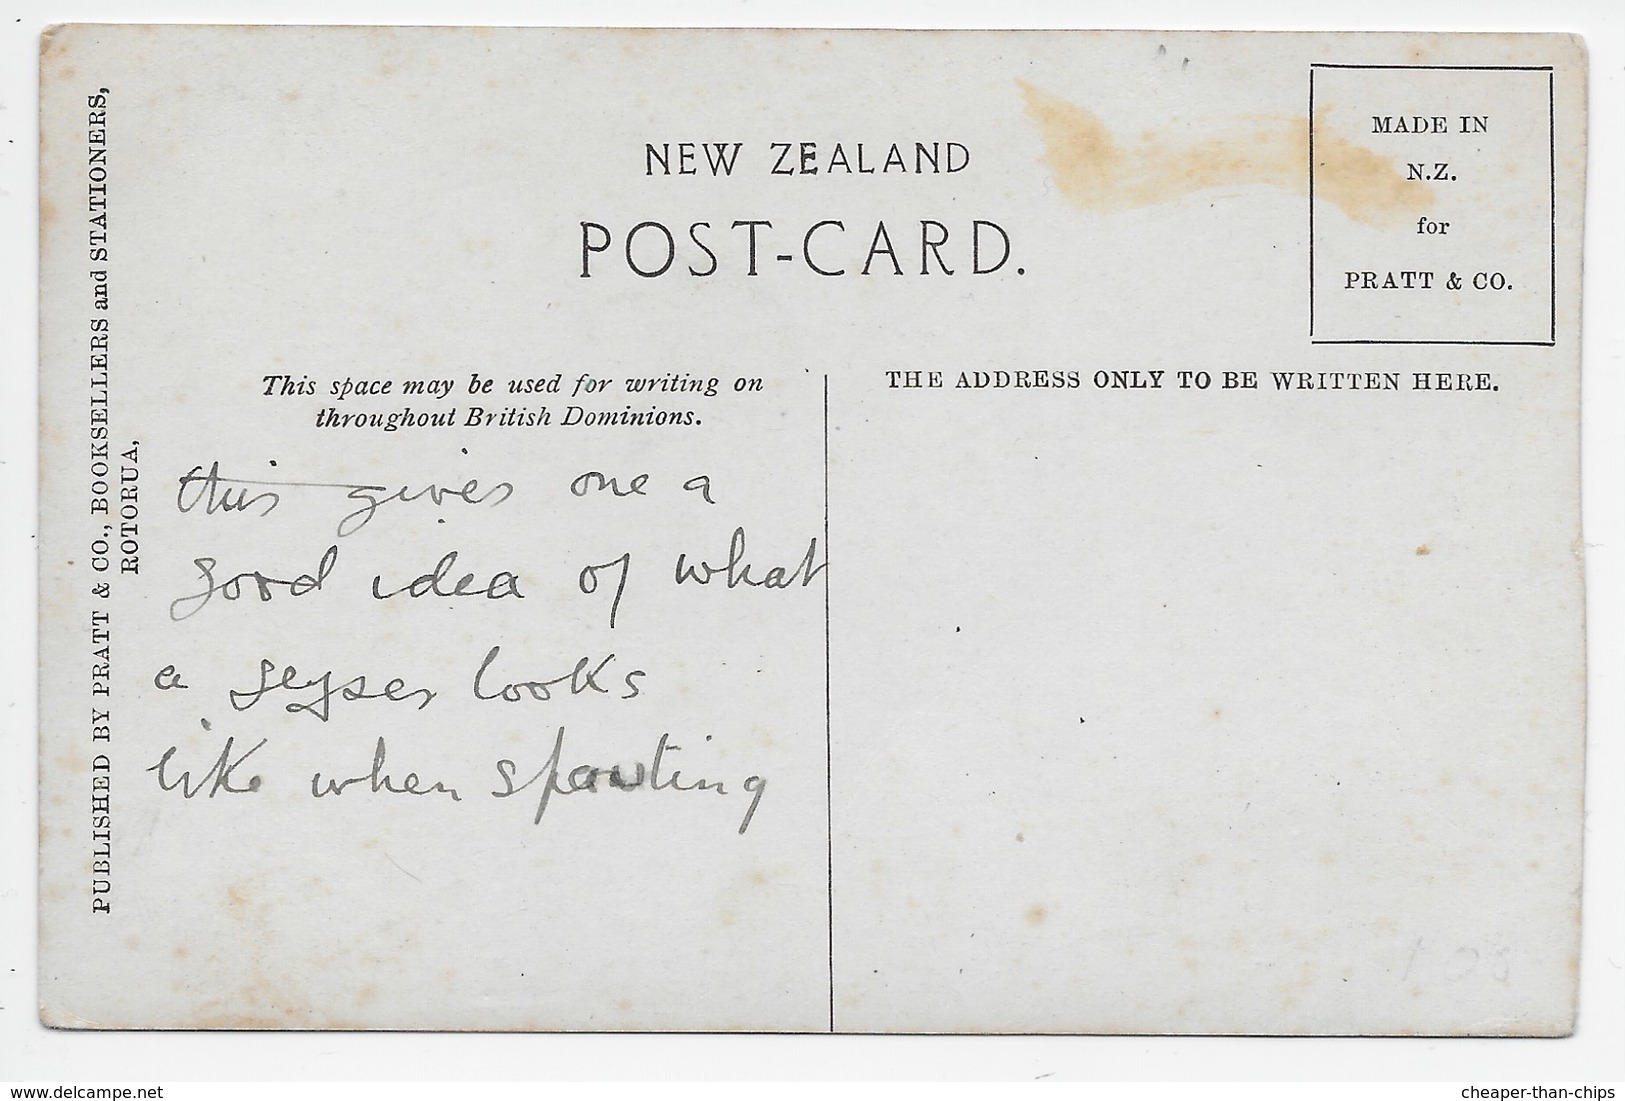 NEW ZEALAND
POST-CARD.
MADE IN
N.Z.
for
PRATT & CO.
PUBLISHED BY PRATT & CO., BOOKSELLERS and STATIONERS,
ROTORUA,
This space may be used for writing on
throughout British Dominions.
this gives one a
good idea of what
a geyser looks
like when spouting
THE ADDRESS ONLY TO BE WRITTEN HERE.
delcampe.net
cheaper-than-chips